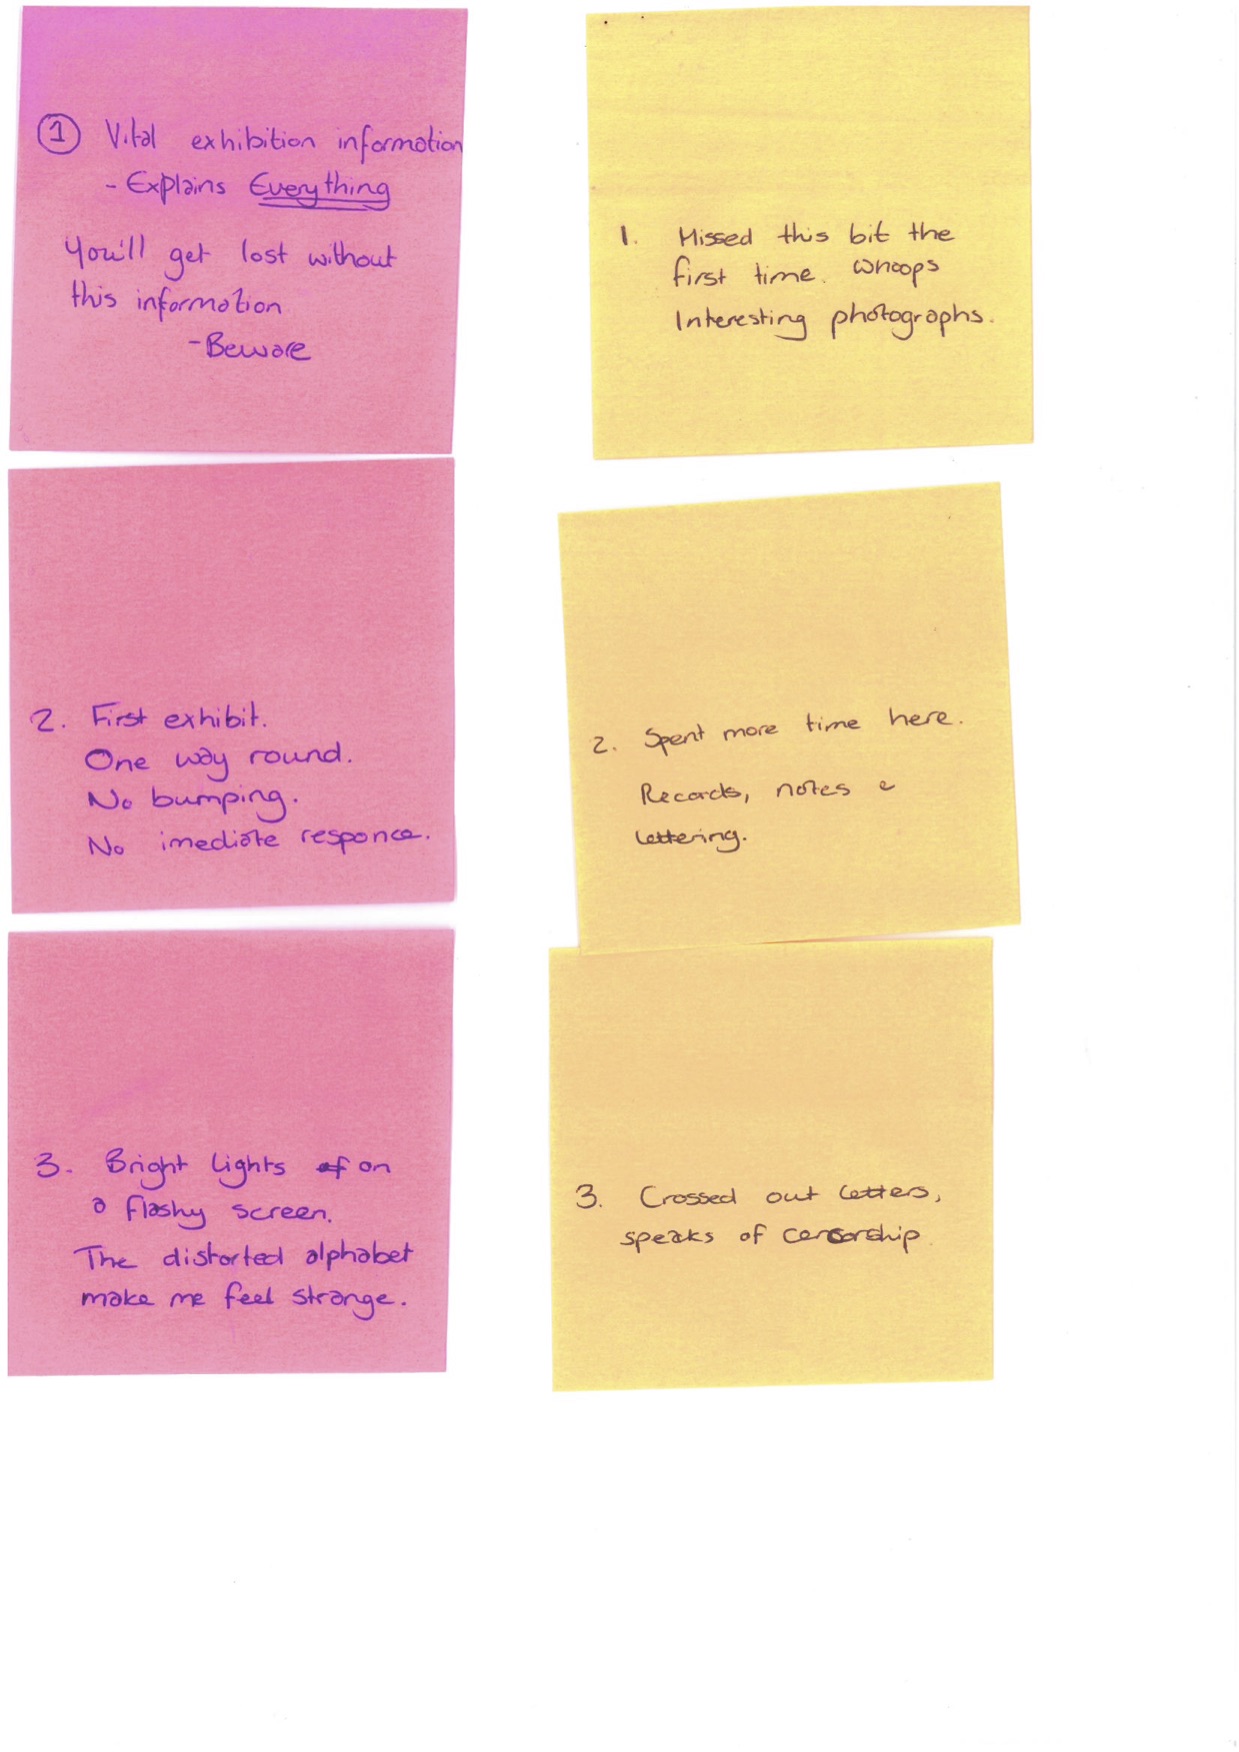 1 Vital exhibition information
- Explains Everything
You'll get lost without
this information
- Beware
2. First exhibit.
One way round.
No bumping.
No imediate responce.
3. Bright lights of on
a flashy screen.
The distorted alphabet
make me feel strange.
1. Missed this bit the
first time. Whoops
Interesting photographs.
2. Spent more time here.
Records, notes &
lettering.
3. Crossed out letters,
speaks of censorship.